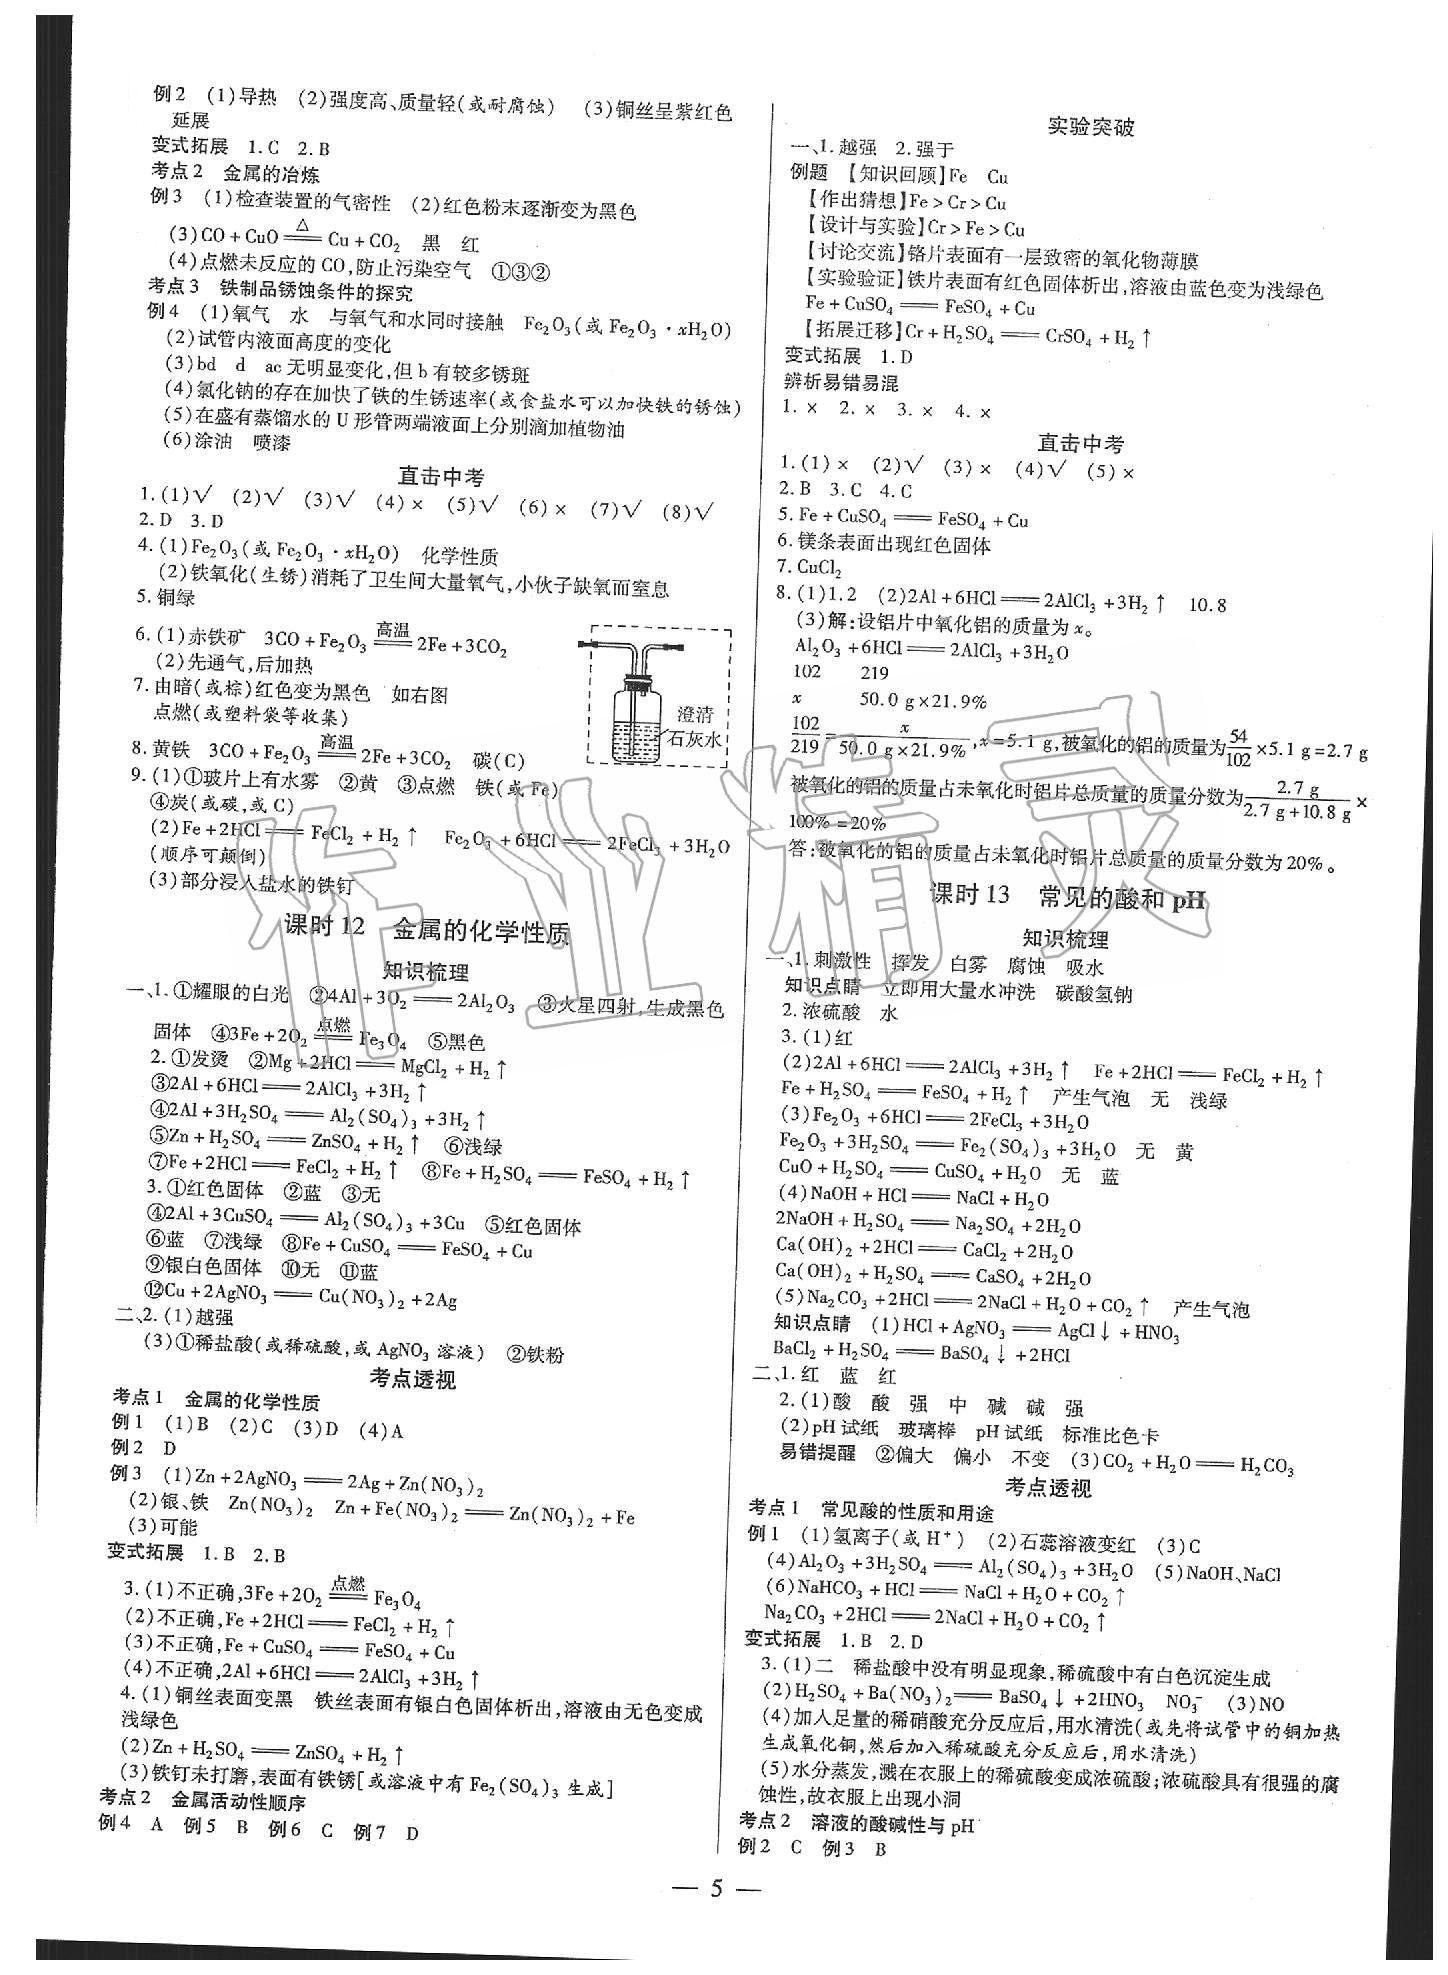 例2 (1)导热 (2)强度高、质量轻(或耐腐蚀) (3)铜丝呈紫红色
延展
变式拓展 1.C 2.B
考点2 金属的冶炼
例3 (1)检查装置的气密性 (2)红色粉末逐渐变为黑色
(3)CO+CuO=△=Cu+CO₂ 黑 红
(4)点燃未反应的CO,防止污染空气 ①③②
考点3 铁制品锈蚀条件的探究
例4 (1)氧气 水 与氧气和水同时接触 Fe₂O₃(或Fe₂O₃·xH₂O)
(2)试管内液面高度的变化
(3)bd d ac无明显变化,但b有较多锈斑
(4)氯化钠的存在加快了铁的生锈速率(或食盐水可以加快铁的锈蚀)
(5)在盛有蒸馏水的U形管两端液面上分别滴加植物油
(6)涂油 喷漆
直击中考
1.(1)√ (2)√ (3)√ (4)× (5)√ (6)× (7)√ (8)√
2.D 3.D
4.(1)Fe₂O₃(或Fe₂O₃·xH₂O) 化学性质
(2)铁氧化(生锈)消耗了卫生间大量氧气,小伙子缺氧而窒息
5.铜绿
6.(1)赤铁矿 3CO+Fe₂O₃=高温=2Fe+3CO₂
(2)先通气,后加热
7.由暗(或棕)红色变为黑色 如右图
点燃(或塑料袋等收集)
澄清
石灰水
8.黄铁 3CO+Fe₂O₃=高温=2Fe+3CO₂ 碳(C)
9.(1)①玻片上有水雾 ②黄 ③点燃 铁(或Fe)
④炭(或碳,或C)
(2)Fe+2HCl══FeCl₂+H₂↑ Fe₂O₃+6HCl══2FeCl₃+3H₂O
(顺序可颠倒)
(3)部分浸入盐水的铁钉
课时12 金属的化学性质
知识梳理
一、1.①耀眼的白光 ②4Al+3O₂══2Al₂O₃ ③火星四射,生成黑色
固体 ④3Fe+2O₂=点燃=Fe₃O₄ ⑤黑色
2.①发烫 ②Mg+2HCl══MgCl₂+H₂↑
③2Al+6HCl══2AlCl₃+3H₂↑
④2Al+3H₂SO₄══Al₂(SO₄)₃+3H₂↑
⑤Zn+H₂SO₄══ZnSO₄+H₂↑ ⑥浅绿
⑦Fe+2HCl══FeCl₂+H₂↑ ⑧Fe+H₂SO₄══FeSO₄+H₂↑
3.①红色固体 ②蓝 ③无
④2Al+3CuSO₄══Al₂(SO₄)₃+3Cu ⑤红色固体
⑥蓝 ⑦浅绿 ⑧Fe+CuSO₄══FeSO₄+Cu
⑨银白色固体 ⑩无 ⑪蓝
⑫Cu+2AgNO₃══Cu(NO₃)₂+2Ag
二、2.(1)越强
(3)①稀盐酸(或稀硫酸,或AgNO₃溶液) ②铁粉
考点透视
考点1 金属的化学性质
例1 (1)B (2)C (3)D (4)A
例2 D
例3 (1)Zn+2AgNO₃══2Ag+Zn(NO₃)₂
(2)银、铁 Zn(NO₃)₂ Zn+Fe(NO₃)₂══Zn(NO₃)₂+Fe
(3)可能
变式拓展 1.B 2.B
3.(1)不正确,3Fe+2O₂=点燃=Fe₃O₄
(2)不正确,Fe+2HCl══FeCl₂+H₂↑
(3)不正确,Fe+CuSO₄══FeSO₄+Cu
(4)不正确,2Al+6HCl══2AlCl₃+3H₂↑
4.(1)铜丝表面变黑 铁丝表面有银白色固体析出,溶液由无色变成
浅绿色
(2)Zn+H₂SO₄══ZnSO₄+H₂↑
(3)铁钉未打磨,表面有铁锈[或溶液中有Fe₂(SO₄)₃生成]
考点2 金属活动性顺序
例4 A 例5 B 例6 C 例7 D
实验突破
一、1.越强 2.强于
例题 【知识回顾】Fe Cu
【作出猜想】Fe>Cr>Cu
【设计与实验】Cr>Fe>Cu
【讨论交流】铬片表面有一层致密的氧化物薄膜
【实验验证】铁片表面有红色固体析出,溶液由蓝色变为浅绿色
Fe+CuSO₄══FeSO₄+Cu
【拓展迁移】Cr+H₂SO₄══CrSO₄+H₂↑
变式拓展 1.D
辨析易错易混
1.× 2.× 3.× 4.×
直击中考
1.(1)× (2)√ (3)× (4)√ (5)×
2.B 3.C 4.C
5.Fe+CuSO₄══FeSO₄+Cu
6.镁条表面出现红色固体
7.CuCl₂
8.(1)1.2 (2)2Al+6HCl══2AlCl₃+3H₂↑ 10.8
(3)解:设铝片中氧化铝的质量为x。
Al₂O₃+6HCl══2AlCl₃+3H₂O
102 219
x 50.0 g×21.9%
102/219=x/(50.0 g×21.9%),x=5.1 g,被氧化的铝的质量为54/102×5.1 g=2.7 g
被氧化的铝的质量占未氧化时铝片总质量的质量分数为2.7 g/(2.7 g+10.8 g)×
100%=20%
答:被氧化的铝的质量占未氧化时铝片总质量的质量分数为20%。
课时13 常见的酸和pH
知识梳理
一、1.刺激性 挥发 白雾 腐蚀 吸水
知识点睛 立即用大量水冲洗 碳酸氢钠
2.浓硫酸 水
3.(1)红
(2)2Al+6HCl══2AlCl₃+3H₂↑ Fe+2HCl══FeCl₂+H₂↑
Fe+H₂SO₄══FeSO₄+H₂↑ 产生气泡 无 浅绿
(3)Fe₂O₃+6HCl══2FeCl₃+3H₂O
Fe₂O₃+3H₂SO₄══Fe₂(SO₄)₃+3H₂O 无 黄
CuO+H₂SO₄══CuSO₄+H₂O 无 蓝
(4)NaOH+HCl══NaCl+H₂O
2NaOH+H₂SO₄══Na₂SO₄+2H₂O
Ca(OH)₂+2HCl══CaCl₂+2H₂O
Ca(OH)₂+H₂SO₄══CaSO₄+2H₂O
(5)Na₂CO₃+2HCl══2NaCl+H₂O+CO₂↑ 产生气泡
知识点睛 (1)HCl+AgNO₃══AgCl↓+HNO₃
BaCl₂+H₂SO₄══BaSO₄↓+2HCl
二、1.红 蓝 红
2.(1)酸 酸 强 中 碱 碱 强
(2)pH试纸 玻璃棒 pH试纸 标准比色卡
易错提醒 ②偏大 偏小 不变 (3)CO₂+H₂O══H₂CO₃
考点透视
考点1 常见酸的性质和用途
例1 (1)氢离子(或H⁺) (2)石蕊溶液变红 (3)C
(4)Al₂O₃+3H₂SO₄══Al₂(SO₄)₃+3H₂O (5)NaOH、NaCl
(6)NaHCO₃+HCl══NaCl+H₂O+CO₂↑
Na₂CO₃+2HCl══2NaCl+H₂O+CO₂↑
变式拓展 1.B 2.D
3.(1)二 稀盐酸中没有明显现象,稀硫酸中有白色沉淀生成
(2)H₂SO₄+Ba(NO₃)₂══BaSO₄↓+2HNO₃ NO₃⁻ (3)NO
(4)加入足量的稀硝酸充分反应后,用水清洗(或先将试管中的铜加热
生成氧化铜,然后加入稀硫酸充分反应后,用水清洗)
(5)水分蒸发,溅在衣服上的稀硫酸变成浓硫酸;浓硫酸具有很强的腐
蚀性,故衣服上出现小洞
考点2 溶液的酸碱性与pH
例2 C 例3 B
— 5 —
作业精灵